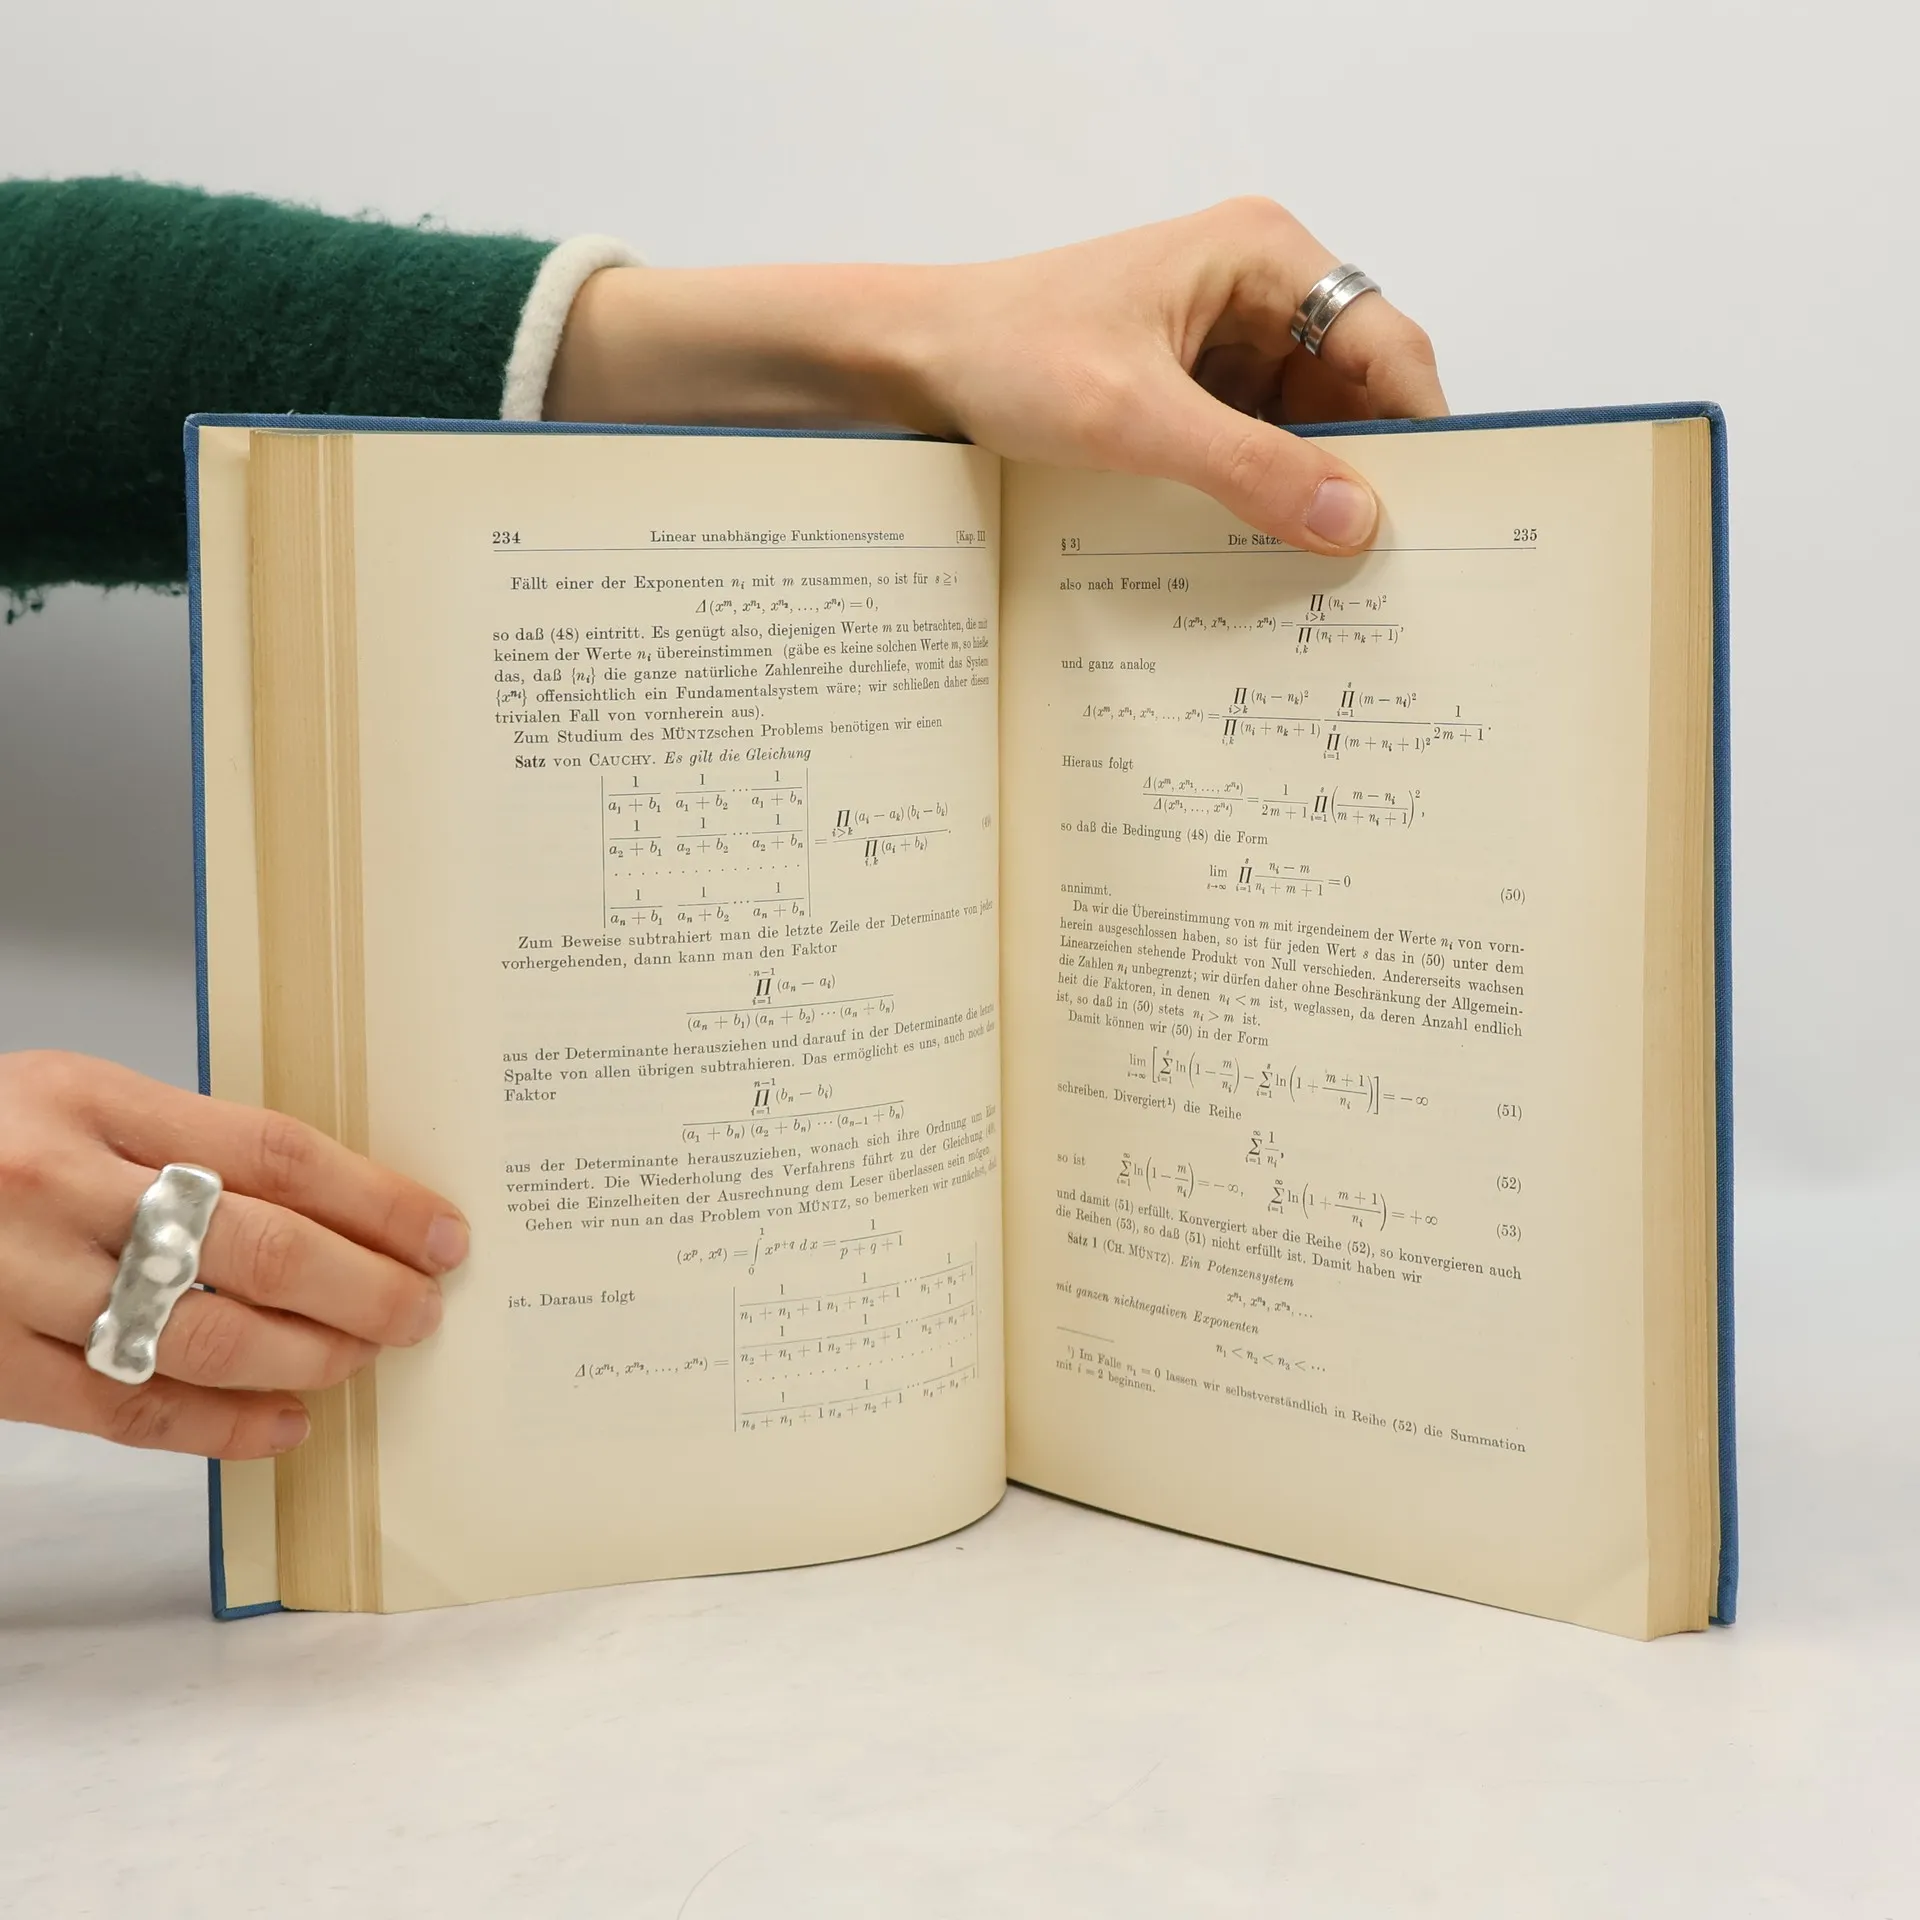 234 Linear unabhängige Funktionensysteme [Kap. III
Fällt einer der Exponenten nᵢ mit m zusammen, so ist für s ≧ i
Δ(xᵐ, xⁿ¹, xⁿ², ..., xⁿˢ) = 0,
so daß (48) eintritt. Es genügt also, diejenigen Werte m zu betrachten, die mit
keinem der Werte nᵢ übereinstimmen (gäbe es keine solchen Werte m, so hieße
das, daß {nᵢ} die ganze natürliche Zahlenreihe durchliefe, womit das System
{xⁿⁱ} offensichtlich ein Fundamentalsystem wäre; wir schließen daher diesen
trivialen Fall von vornherein aus).
Zum Studium des MÜNTZschen Problems benötigen wir einen
Satz von CAUCHY. Es gilt die Gleichung
| 1/(a₁ + b₁) 1/(a₁ + b₂) ··· 1/(a₁ + bₙ) |
| 1/(a₂ + b₁) 1/(a₂ + b₂) ··· 1/(a₂ + bₙ) | = ∏_{i>k} (aᵢ − aₖ)(bᵢ − bₖ) / ∏_{i,k} (aᵢ + bₖ). (49)
| . . . . . . . . . . . . . . |
| 1/(aₙ + b₁) 1/(aₙ + b₂) ··· 1/(aₙ + bₙ) |
Zum Beweise subtrahiert man die letzte Zeile der Determinante von jeder
vorhergehenden, dann kann man den Faktor
∏_{i=1}^{n−1} (aₙ − aᵢ) / (aₙ + b₁)(aₙ + b₂) ··· (aₙ + bₙ)
aus der Determinante herausziehen und darauf in der Determinante die letzte
Spalte von allen übrigen subtrahieren. Das ermöglicht es uns, auch noch den
Faktor
∏_{i=1}^{n−1} (bₙ − bᵢ) / (a₁ + bₙ)(a₂ + bₙ) ··· (aₙ₋₁ + bₙ)
aus der Determinante herauszuziehen, wonach sich ihre Ordnung um Eins
vermindert. Die Wiederholung des Verfahrens führt zu der Gleichung (49),
wobei die Einzelheiten der Ausrechnung dem Leser überlassen sein mögen.
Gehen wir nun an das Problem von MÜNTZ, so bemerken wir zunächst, daß
(xᵖ, x^q) = ∫₀¹ x^{p+q} dx = 1/(p + q + 1)
ist. Daraus folgt
| 1/(n₁ + n₁ + 1) 1/(n₁ + n₂ + 1) ··· 1/(n₁ + nₛ + 1) |
| 1/(n₂ + n₁ + 1) 1/(n₂ + n₂ + 1) ··· 1/(n₂ + nₛ + 1) |
Δ(xⁿ¹, xⁿ², ..., xⁿˢ) = | . . . . . . . . . . . . . . |
| 1/(nₛ + n₁ + 1) 1/(nₛ + n₂ + 1) ··· 1/(nₛ + nₛ + 1) |
§ 3] Die Sätze 235
also nach Formel (49)
Δ(xⁿ¹, xⁿ², ..., xⁿˢ) = ∏_{i>k} (nᵢ − nₖ)² / ∏_{i,k} (nᵢ + nₖ + 1),
und ganz analog
Δ(xᵐ, xⁿ¹, xⁿ², ..., xⁿˢ) = ∏_{i>k} (nᵢ − nₖ)² / ∏_{i,k} (nᵢ + nₖ + 1) ∏_{i=1}^{s} (m − nᵢ)² / ∏_{i=1}^{s} (m + nᵢ + 1)² 1/(2m + 1).
Hieraus folgt
Δ(xᵐ, xⁿ¹, ..., xⁿˢ) / Δ(xⁿ¹, ..., xⁿˢ) = 1/(2m + 1) ∏_{i=1}^{s} ((m − nᵢ)/(m + nᵢ + 1))²,
so daß die Bedingung (48) die Form
lim_{s→∞} ∏_{i=1}^{s} (nᵢ − m)/(nᵢ + m + 1) = 0 (50)
annimmt.
Da wir die Übereinstimmung von m mit irgendeinem der Werte nᵢ von vorn-
herein ausgeschlossen haben, so ist für jeden Wert s das in (50) unter dem
Linearzeichen stehende Produkt von Null verschieden. Andererseits wachsen
die Zahlen nᵢ unbegrenzt; wir dürfen daher ohne Beschränkung der Allgemein-
heit die Faktoren, in denen nᵢ < m ist, weglassen, da deren Anzahl endlich
ist, so daß in (50) stets nᵢ > m ist.
Damit können wir (50) in der Form
lim_{i→∞} [∑_{i=1}^{s} ln(1 − m/nᵢ) − ∑_{i=1}^{s} ln(1 + (m + 1)/nᵢ)] = −∞ (51)
schreiben. Divergiert¹) die Reihe
∑_{i=1}^{∞} 1/nᵢ, (52)
so ist
∑_{i=1}^{∞} ln(1 − m/nᵢ) = −∞, ∑_{i=1}^{∞} ln(1 + (m + 1)/nᵢ) = +∞ (53)
und damit (51) erfüllt. Konvergiert aber die Reihe (52), so konvergieren auch
die Reihen (53), so daß (51) nicht erfüllt ist. Damit haben wir
Satz 1 (CH. MÜNTZ). Ein Potenzensystem
xⁿ¹, xⁿ², xⁿ³, ...
mit ganzen nichtnegativen Exponenten
n₁ < n₂ < n₃ < ···
¹) Im Falle n₁ = 0 lassen wir selbstverständlich in Reihe (52) die Summation
mit i = 2 beginnen.